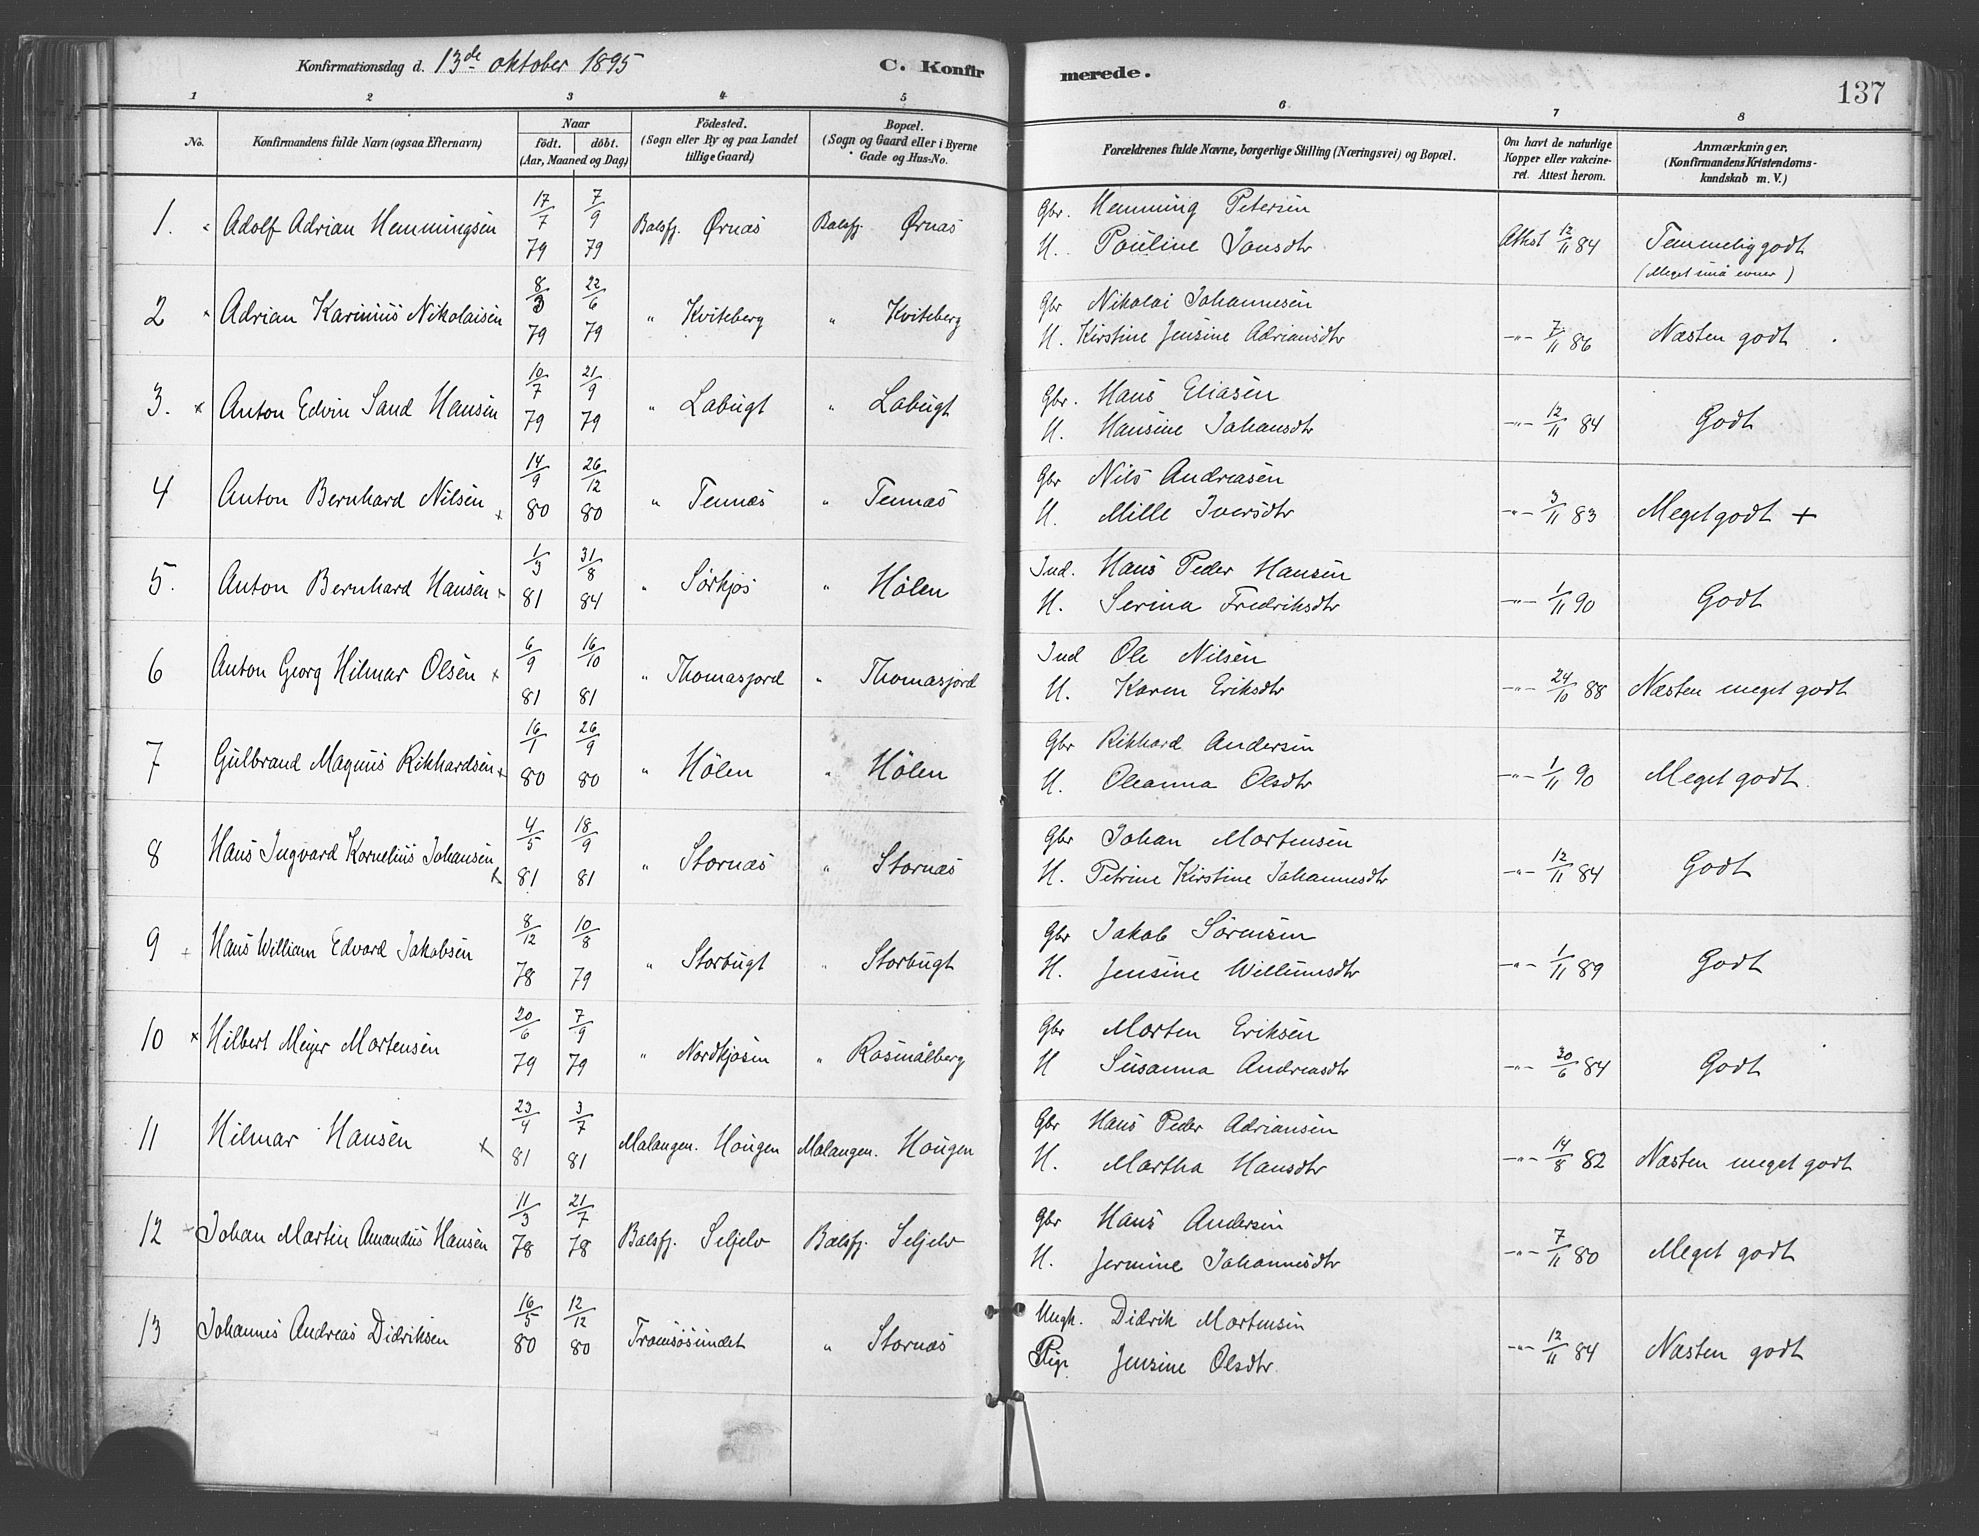 Konfirmationsdag d. 13de oktober 1895 C. Konfirmerede. 137
1 2 3 4 5 6 7 8
No. Konfirmandens fulde Navn (ogsaa Efternavn) Naar født. døbt. (Aar, Maaned og Dag) Födested. (Sogn eller By og paa Landet tillige Gaard) Bopæl. (Sogn og Gaard eller i Byerne Gade og Hus-No. Forældrenes fulde Navne, borgerlige Stilling (Næringsvei) og Bopæl. Om havt de naturlige Kopper eller vakcineret. Attest herom. Anmærkninger. (Konfirmandens Kristendomskundskab m. V.)
1. Adolf Adrian Hemmingsen 17/7 79 7/9 79 Balsfj. Ørnæs Balsfj. Ørnæs Gbr. Hemming Petersen
H. Pauline Jonsdtr Attst 12/11 84 Temmelig godt
(Meget små evner)
2 Adrian Karinius Nikolaisen 8/3 79 22/6 79 " Kviteberg " Kviteberg Gbr Nikolai Johannesen
H. Kirstine Jensine Adriansdtr -"- 7/11 86 Næsten godt
3. x Anton Edvin Sand Hansen 10/7 79 21/9 79 " Labugt " Labugt Gbr. Hans Eliasen
H. Hansine Johansdtr -"- 12/11 84 Godt
4 Anton Bernhard Nilsen x 14/9 80 26/12 80 " Tennæs " Tennæs Gbr Nils Andreasen
H. Mille Iversdtr -"- 3/11 83 Meget godt +
5. Anton Bernhard Hansen x 1/3 81 31/8 84 " Sørkjos " Hølen Ind. Hans Peder Hansen
H. Serina Fredriksdtr -"- 1/11 90 Godt
6 Anton Georg Hilmar Olsen x 6/9 81 16/10 81 " Thomasjord " Thomasjord Ind Ole Nilsen
H. Karen Eriksdtr -"- 24/10 88 Næsten meget godt
7 Gulbrand Magnus Rikhardsen x 16/1 80 26/9 80 " Hølen " Hølen Gbr Rikhard Andersen
H. Oleanna Olsdtr -"- 1/11 90 Meget godt.
8 Hans Ingvard Kornelius Johansen x 4/5 81 18/9 81 " Stornæs " Stornæs Gbr Johan Mortensen
H. Petrine Kirstine Johannesdtr -"- 12/11 84 Godt
9 + Hans William Edvard Jakobsen 8/12 78 10/8 79 " Storbugt " Storbugt Gbr Jakob Sørensen
H. Jensine Willumsdtr -"- 1/11 89 Godt
10 x Hilbert Meyer Mortensen 20/6 79 7/9 79 " Nordkjosen " Rasmålberg Gbr Morten Eriksen
H Susanna Andreasdtr -"- 30/6 84 Godt
11 Hilmar Hansen x 23/4 81 3/7 81 Malangen. Hougen Malangen. Hougen Gbr Hans Peder Adriansen
H. Martha Hansdtr -"- 14/8 82 Næsten meget godt
12 Johan Martin Amandus Hansen 11/3 78 21/7 78 Balsfj. Seljelv Balsfj. Seljelv Gbr Hans Andersen
H. Jermine Johannesdtr -"- 7/11 80 Meget godt
13 Johannes Andreas Didriksen 16/5 80 12/12 80 Tromsøsundet " Stornæs Ungk. Didrik Mortensen
Pige Jensine Olsdtr. -"- 12/11 84 Næsten godt